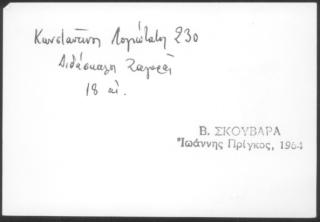 Κωνσταντίνος Λογιώτατος 230
Διδάσκαλος Ζαγοράς
18 αἰ.
Β. ΣΚΟΥΒΑΡΑ
Ἰωάννης Πρίγκος, 1964